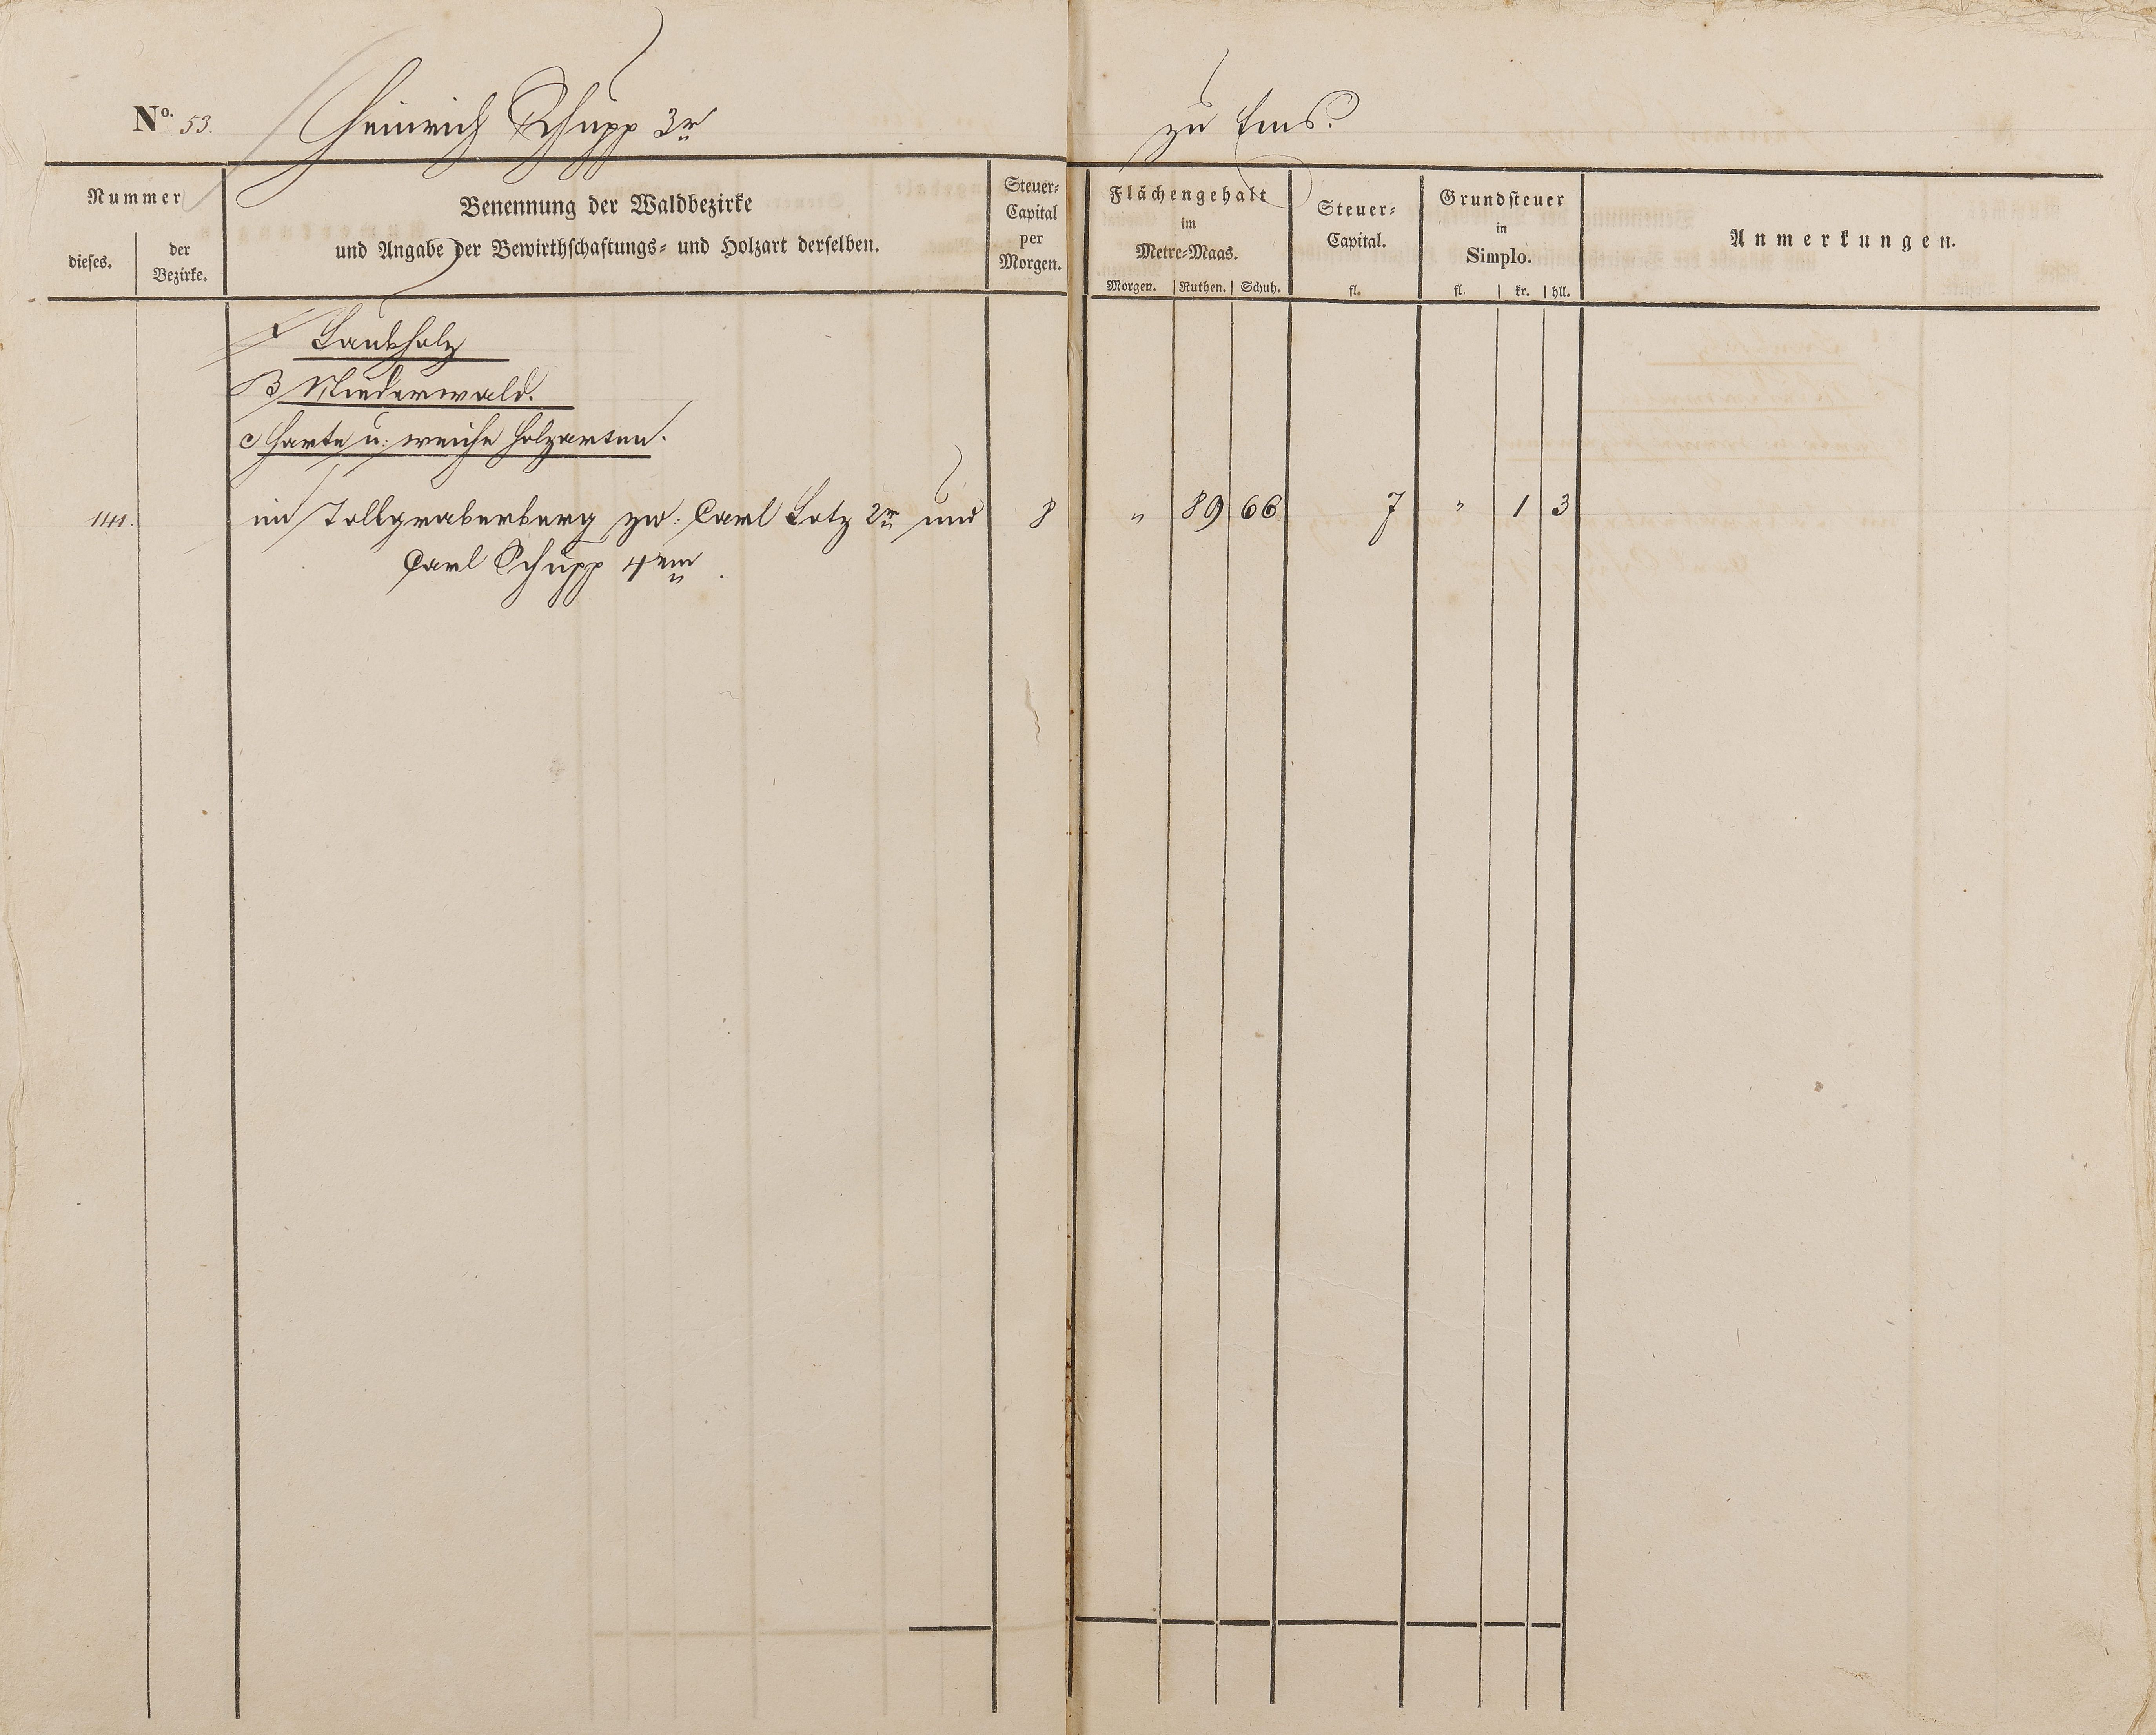 No. 53. Heinrich Schupp 3r zu Ems.
Nummer
dieses.
der
Bezirke.
Benennung der Waldbezirke
und Angabe der Bewirthschaftungs- und Holzart derselben.
Steuer-
Capital
per
Morgen.
Flächengehalt
im
Metre-Maas.
Morgen. Ruthen. Schuh.
Steuer-
Capital.
fl.
Grundsteuer
in
Simplo.
fl. kr. hll.
Anmerkungen.
Laubholz
B Niederwald.
c Harte u: weiche Holzarten.
141. im Tollgraberberg zw: Carl Lotz 2r und 8 " 89 66 7 " 1 3
Carl Schupp 4rem.